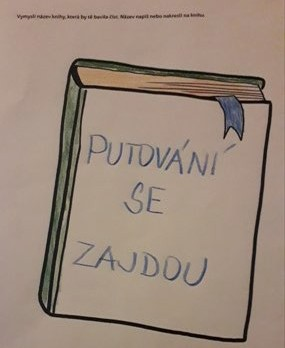 Vymysli název knihy, která by tě bavila číst. Název napiš nebo nakresli na knihu.
PUTOVÁNÍ
SE
ZAJDOU